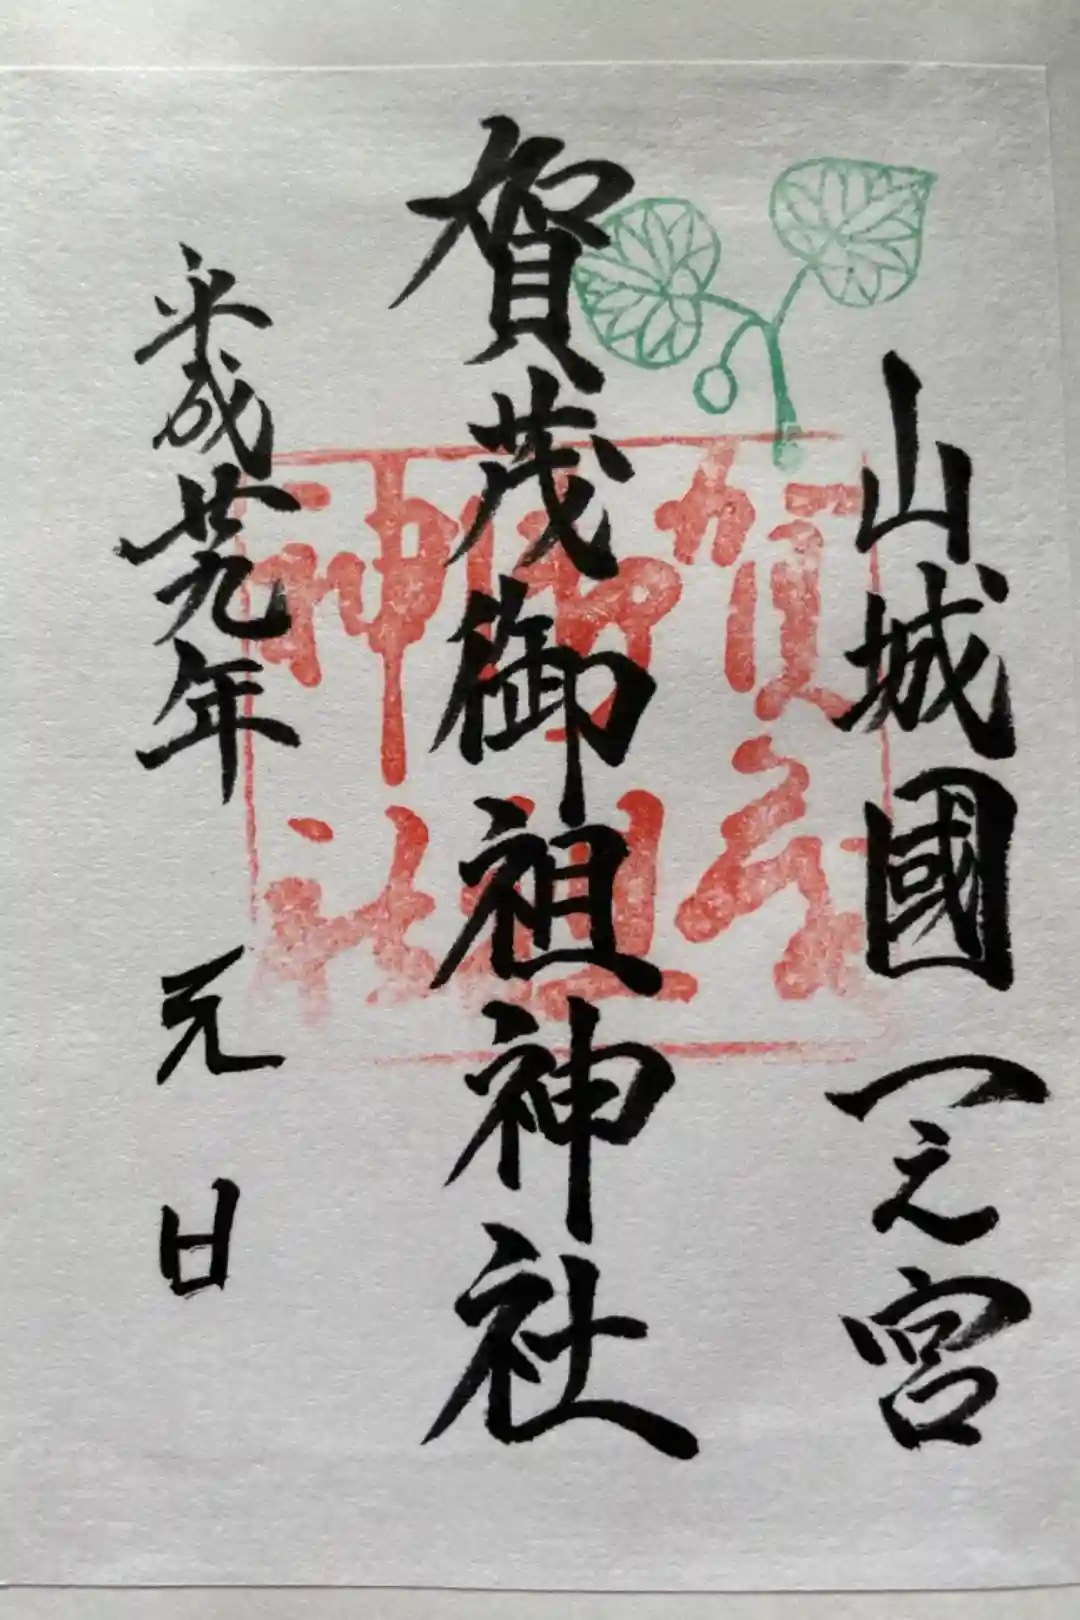 山城國一之宮
賀茂御祖神社
平成廿九年 元日
賀茂
御祖
神社